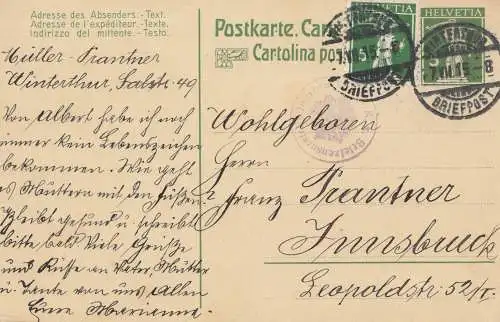 Adresse des Absenders.-Text.
Adresse de l'expéditeur.-Texte.
Indirizzo del mittente.-Testo.
Müller-Prantner
Winterthur, Salstr. 49
Von Albert habe ich noch
immer kein Lebenszeichen
bekommen. Wie geht
es Muttern mit den Füßen?
Bleibt gesund u schreibt
bitte bald Viele Grüße
und Küsse an Vater, Mutter
u. Tante von uns Allen
Eure Marianne.
Postkarte. Car
Cartolina pos
HELVETIA
HELVETIA
7.VII.15
BRIEFPOST
WINTERTHUR
7.VII.15.-8
BRIEFPOST
Wohlgeboren
Herrn
Franz Prantner
Innsbruck
Leopoldstr. 52/I.